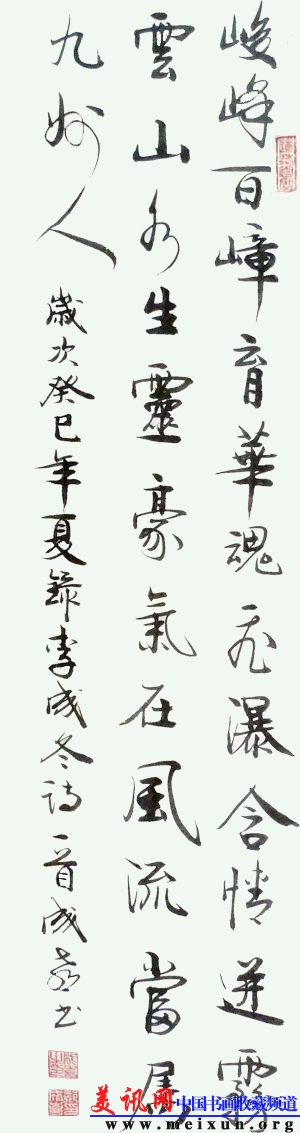 峻峰百嶂育華魂飛瀑含情迸霧
雲山水生靈豪氣在風流當属
九州人
歲次癸巳年夏錄李成冬詩一首成書
美讯网 中国书画收藏频道
www.meixun.org